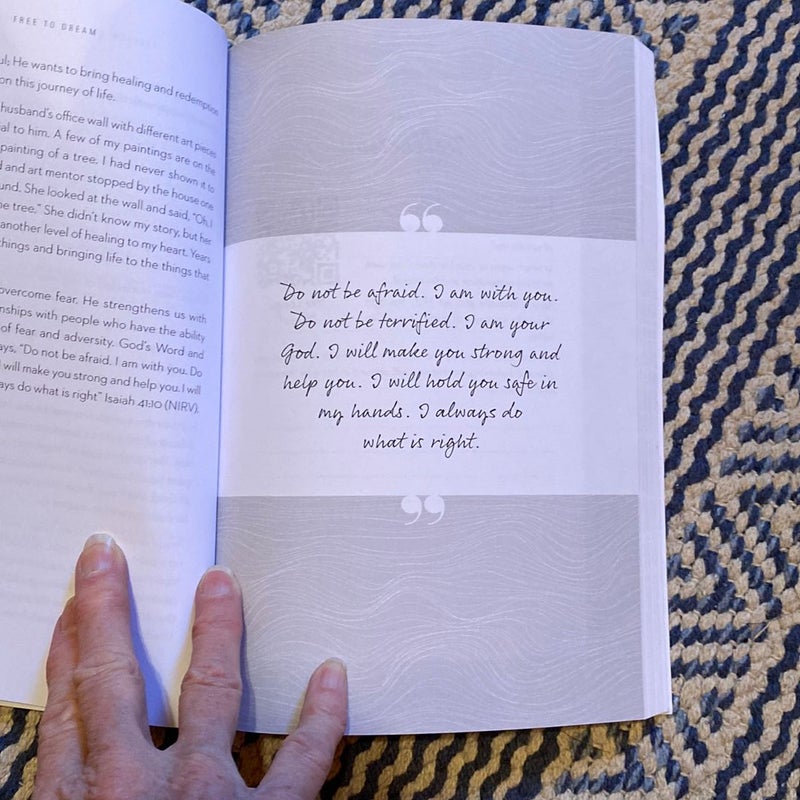 FREE TO DREAM
He wants to bring healing and redemption
on this journey of life.
husband's office wall with different art pieces
to him. A few of my paintings are on the
painting of a tree. I had never shown it to
and art mentor stopped by the house one
She looked at the wall and said, "Oh, I
tree." She didn't know my story, but her
another level of healing to my heart. Years
things and bringing life to the things that
overcome fear. He strengthens us with
with people who have the ability
of fear and adversity. God's Word and
"Do not be afraid. I am with you. Do
will make you strong and help you. I will
do what is right" Isaiah 41:10 (NIRV).
“
Do not be afraid. I am with you.
Do not be terrified. I am your
God. I will make you strong and
help you. I will hold you safe in
my hands. I always do
what is right.
”